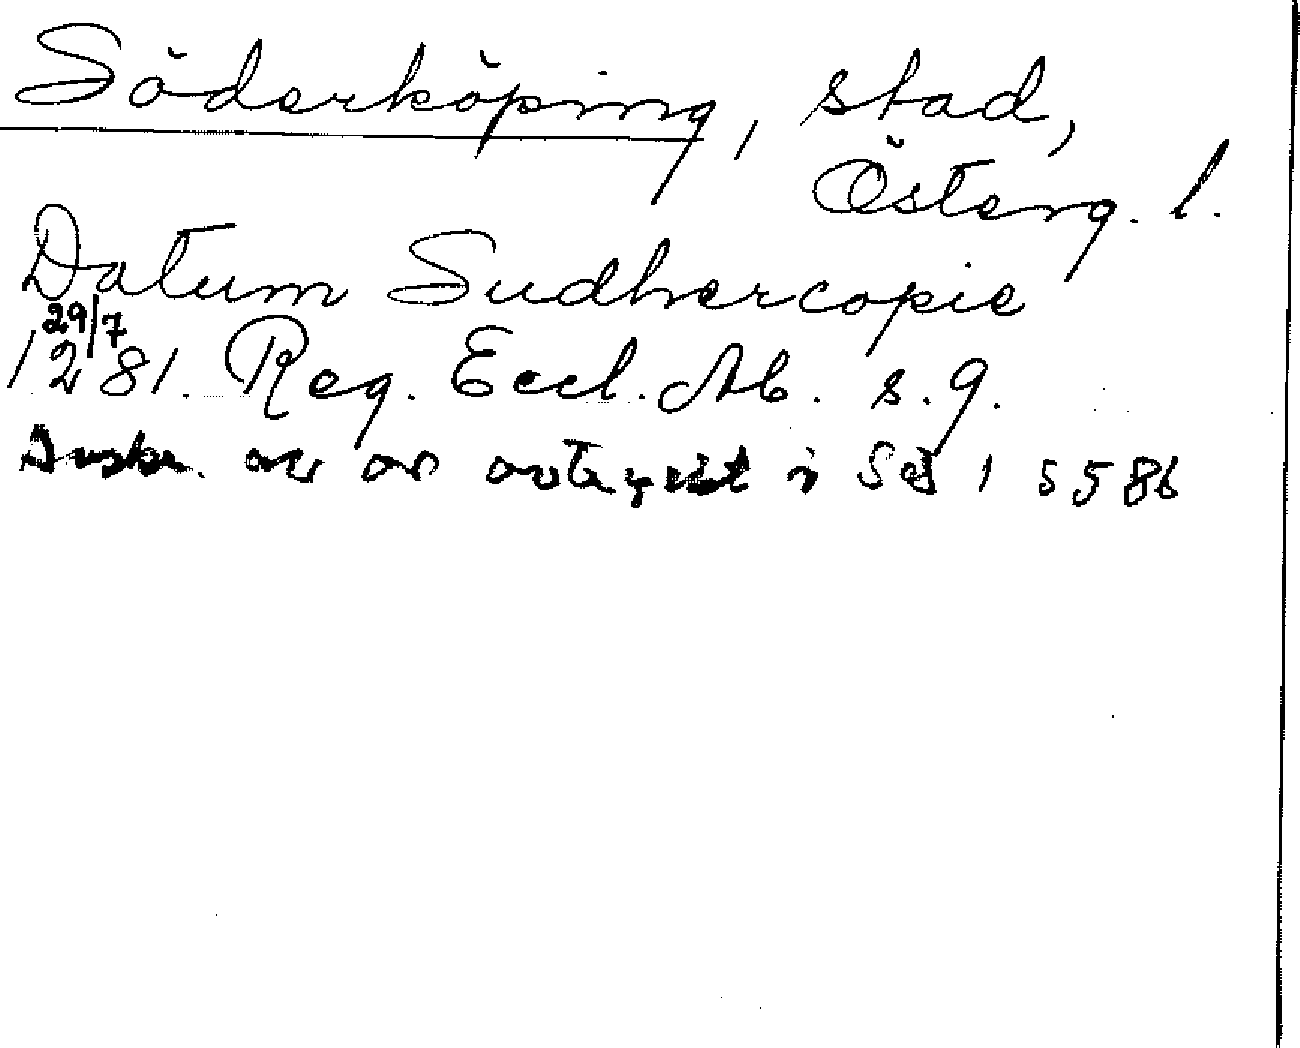 Söderköping, stad,
Österg. l.
Datum Sudhercopie
29/7
1281. Reg. Eccl. Ab. s. 9.
Avskr. av or avtryckt i SD 1 s 586